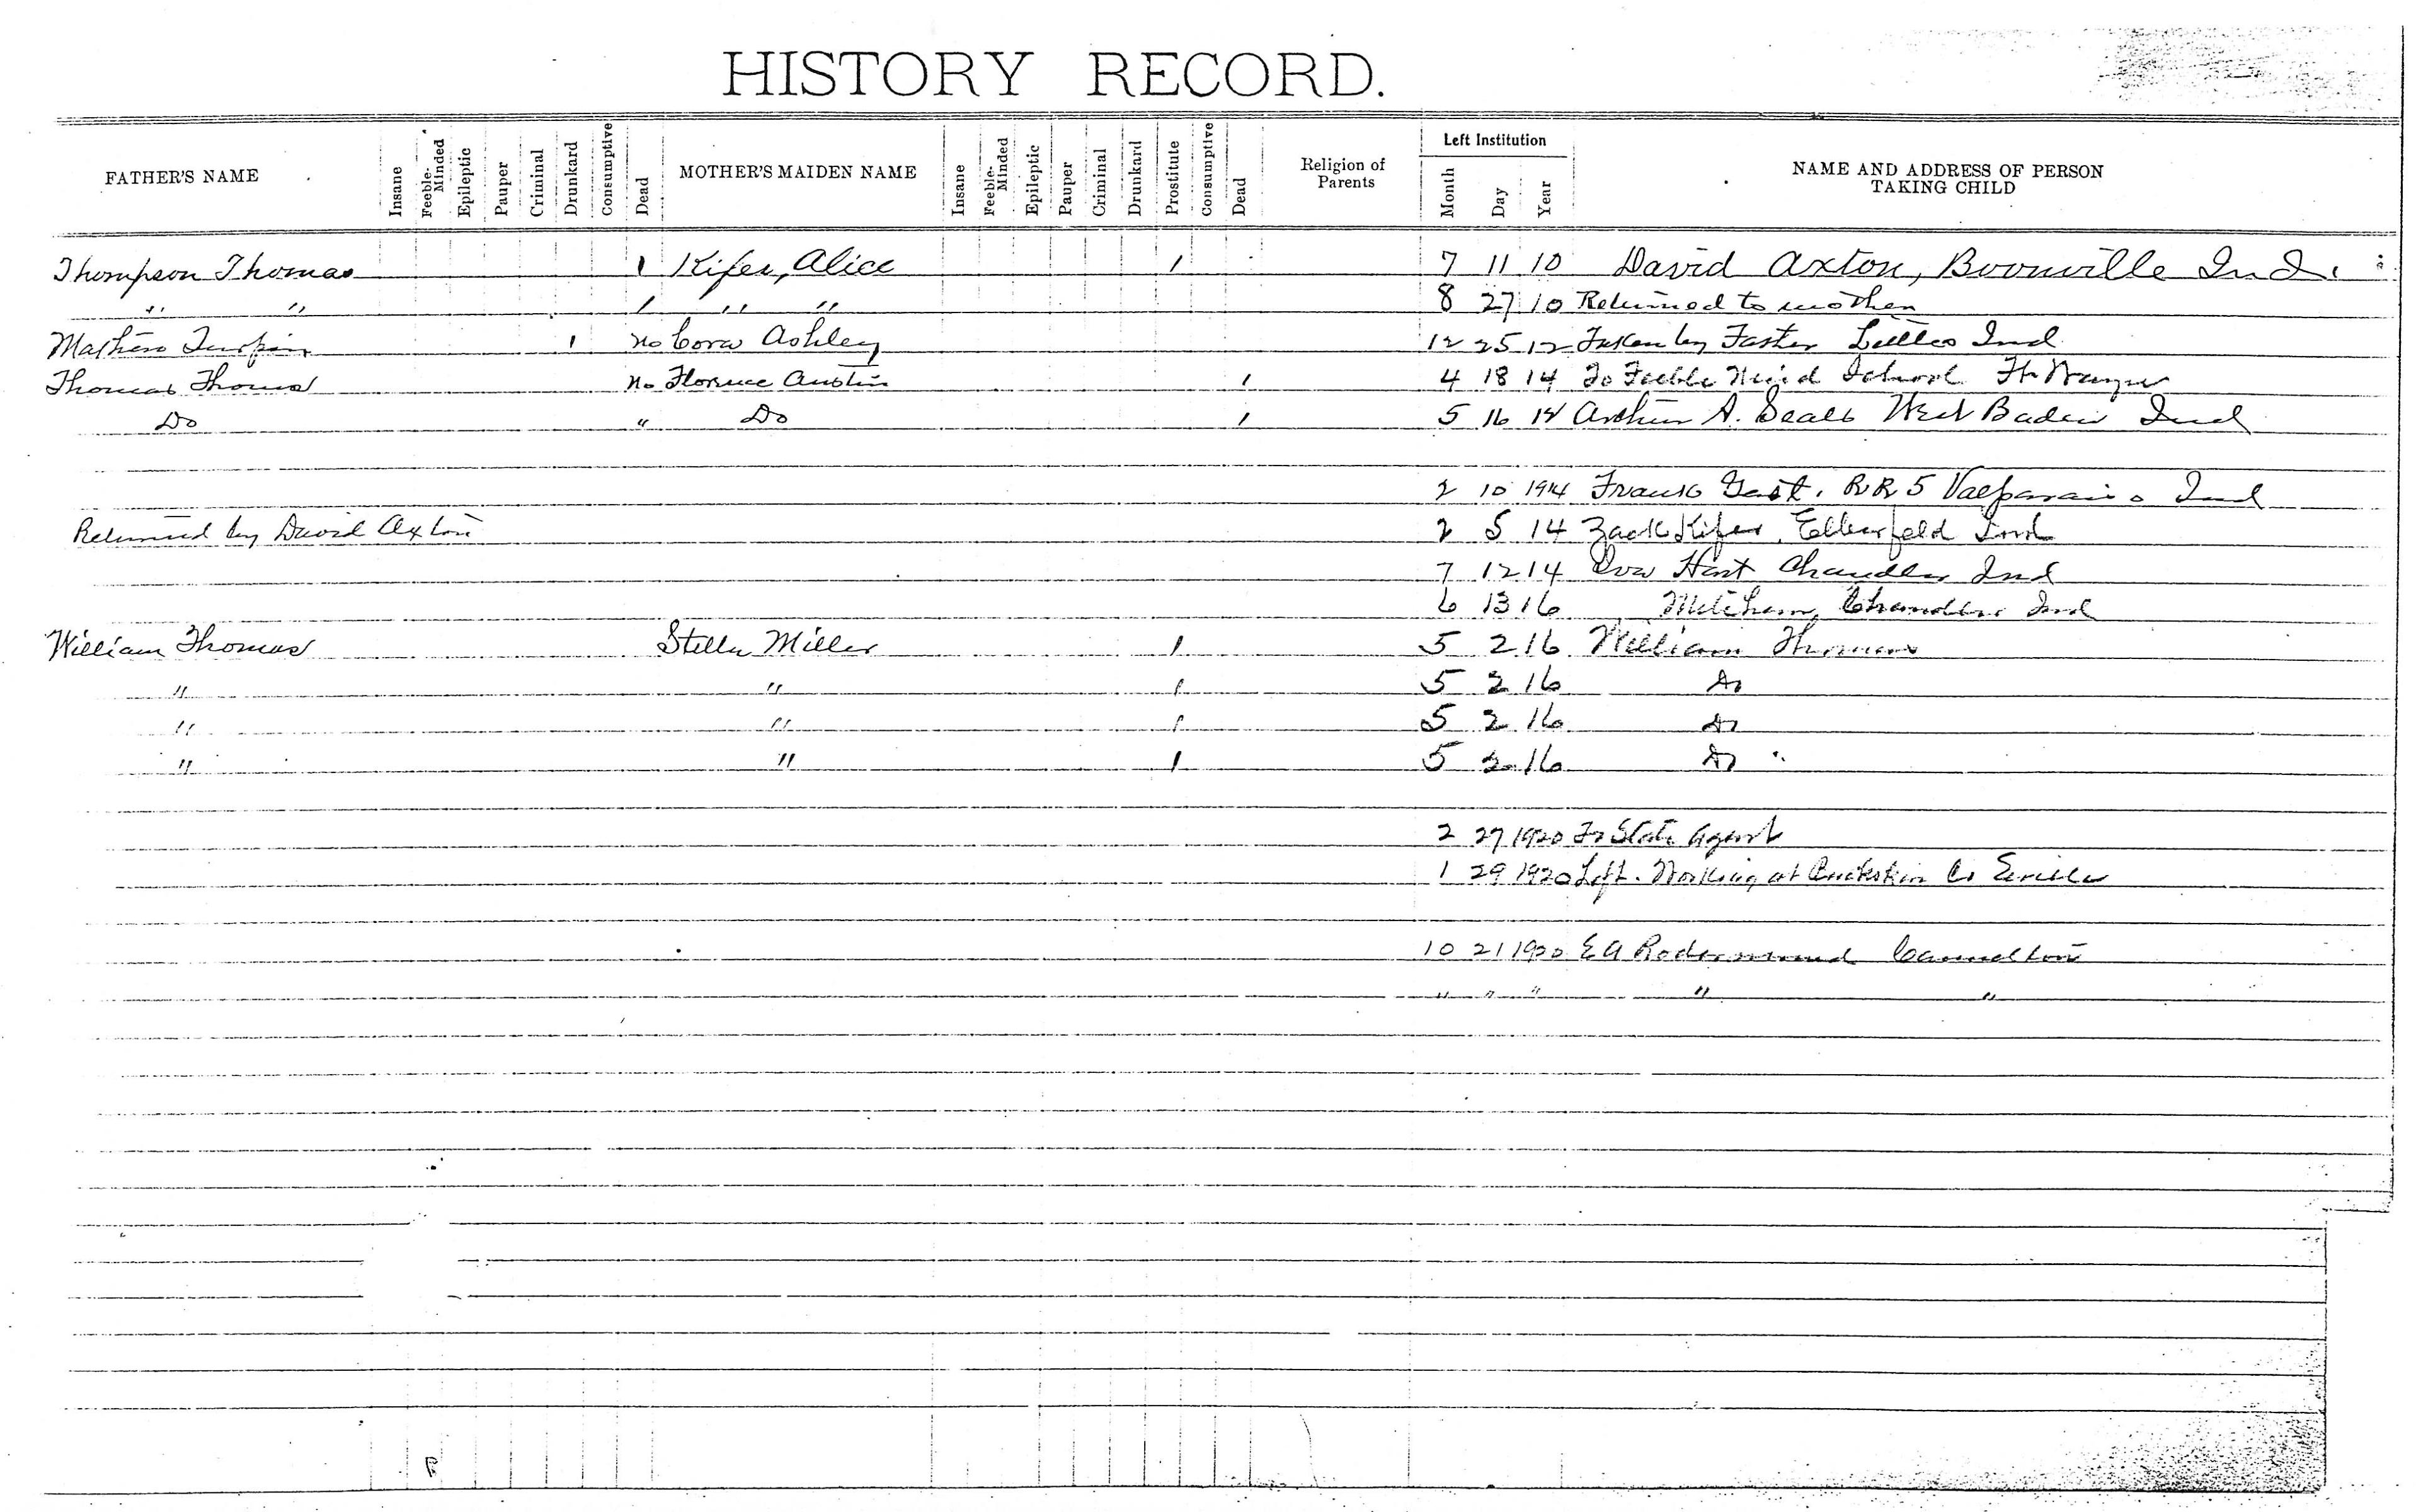 HISTORY RECORD.
FATHER'S NAME Insane Feeble-Minded Epileptic Pauper Criminal Drunkard Consumptive Dead MOTHER'S MAIDEN NAME Insane Feeble-Minded Epileptic Pauper Criminal Drunkard Prostitute Consumptive Dead Religion of Parents Left Institution Month Day Year NAME AND ADDRESS OF PERSON TAKING CHILD
Thompson Thomas 1 Kifer, Alice 1 7 11 10 David Axton, Boonville Ind.
" " 1 " " 8 27 10 Returned to mother
Turpin 1 no Cora Ashley 12 25 12 Taken by Ind
Thomas Thomas no Florence Austin 1 4 18 14 To Feeble Mind School Ft Wayne
Do " Do 1 5 16 14 Arthur A. West Baden Ind
2 10 1914 Frank RR 5 Valparaiso Ind
Returned by David Axton 2 5 14 Zack Kifer, Elberfeld Ind
7 12 14 Hart Chandler Ind
6 13 16 Chandler Ind
William Thomas Stella Miller 1 5 2 16 William Thomas
" " 1 5 2 16 Do
" " 1 5 2 16 Do
" " 1 5 2 16 Do "
2 27 1920 To State Agent
1 29 1920 Left. Working at Co
10 21 1920 E A Cannelton
" " " " "